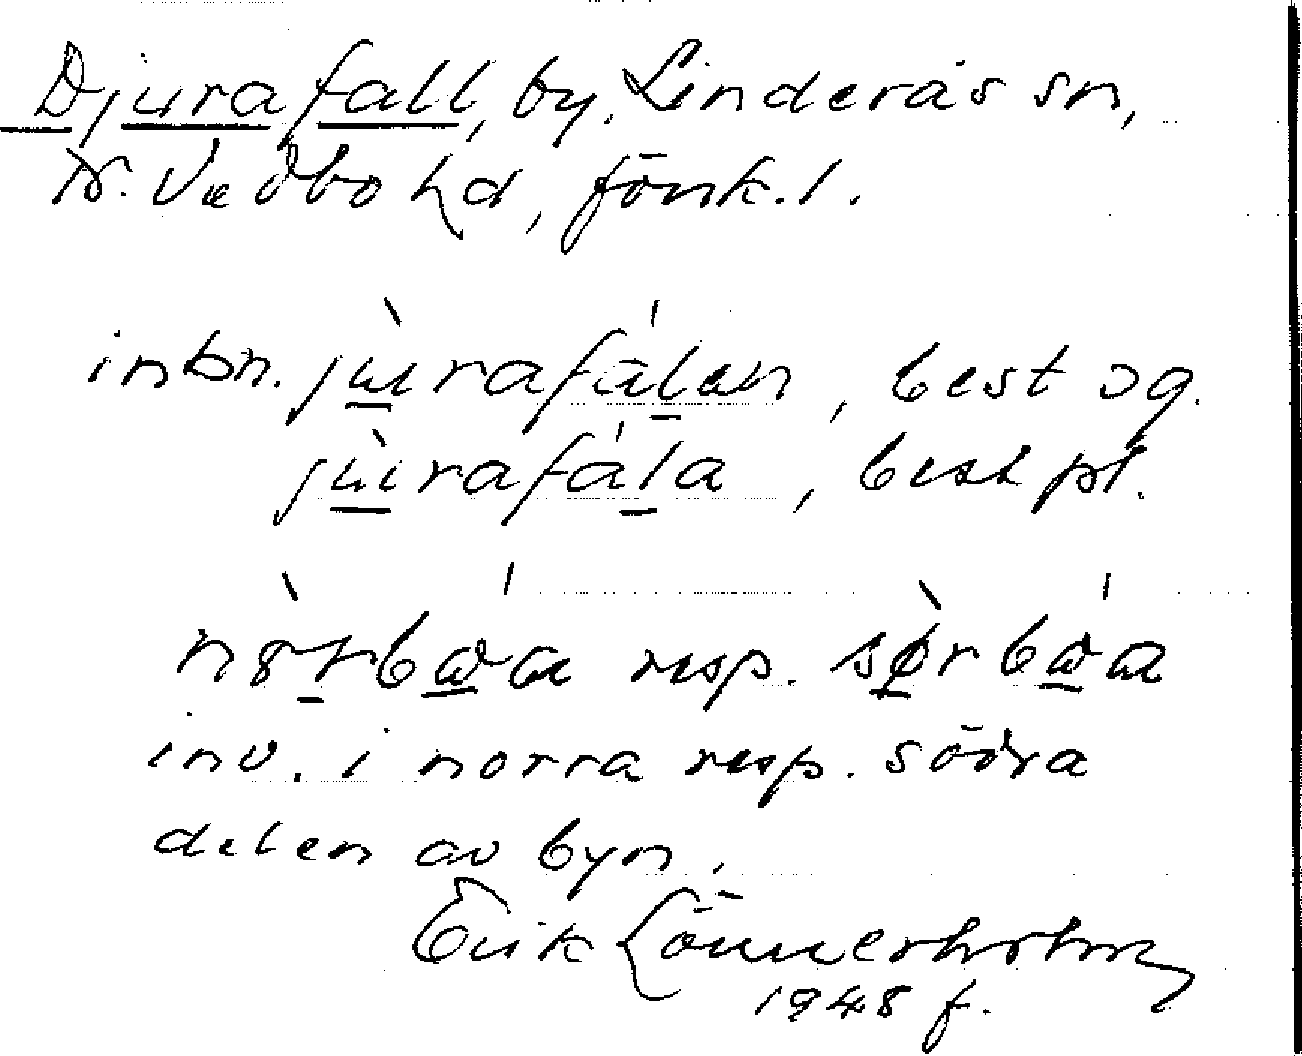 Djurafall, by, Linderås sn,
N. Vedbo hd, Jönk. l.
inbn. jùrafálan, best sg.
jùrafála, best pl.
nòrbáa resp. sørbáa
inv. i norra resp. södra
delen av byn.
Erik Lönnerholm
1948 f.